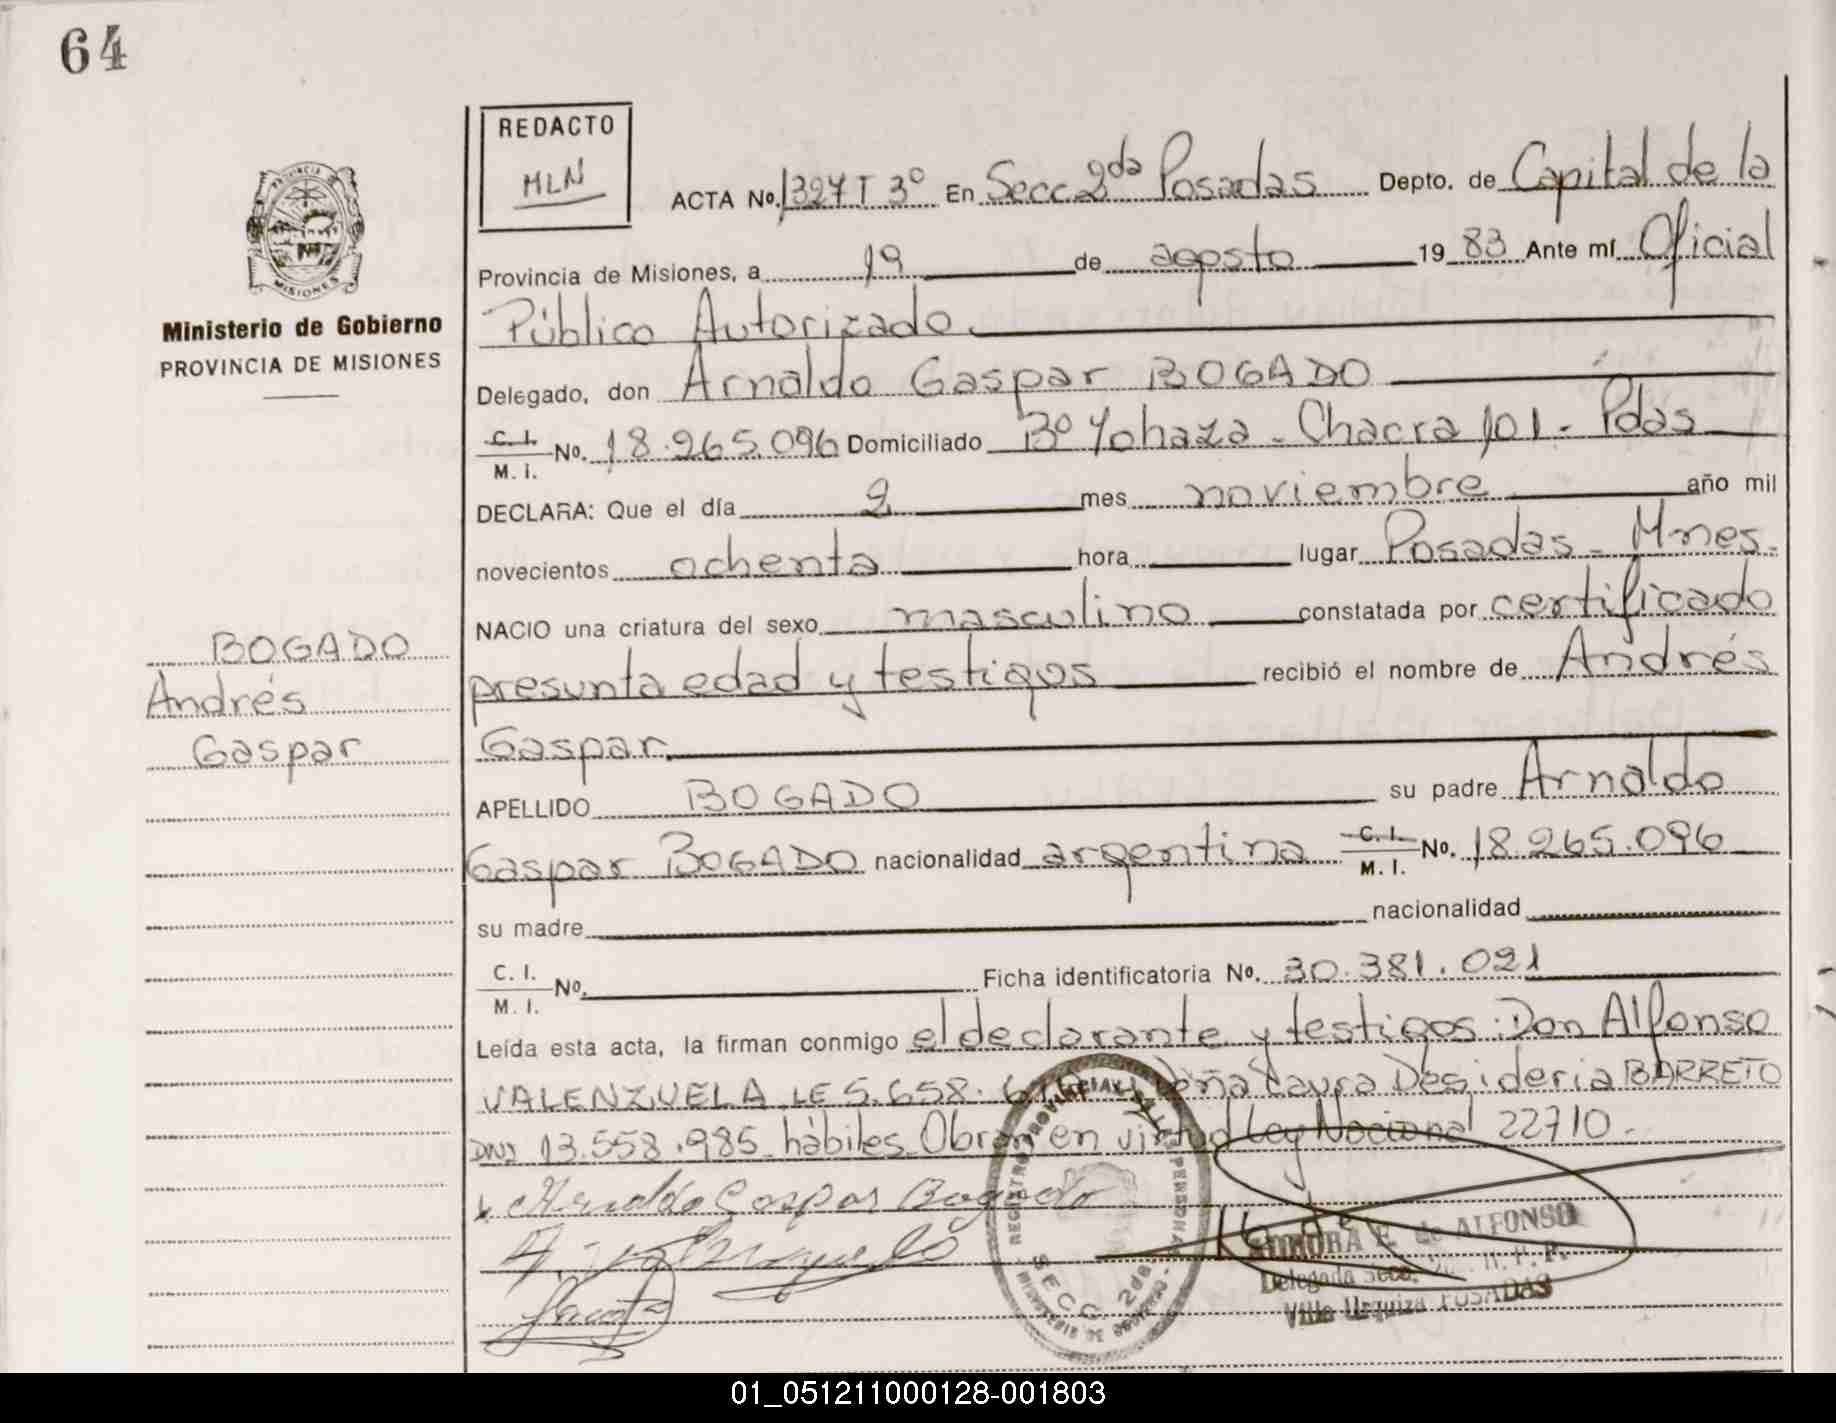 64
REDACTO
MLN
PROVINCIA DE
MISIONES
Ministerio de Gobierno
PROVINCIA DE MISIONES
ACTA No. 1327 T 3º En Secc 2da Posadas Depto. de Capital de la
Provincia de Misiones, a 19 de agosto 19 83 Ante mí Oficial
Público Autorizado
Delegado, don Arnaldo Gaspar BOGADO
C. I. M. I. No. 18.265.096 Domiciliado Bº Yohaza - Chacra 101 - Pdas
DECLARA: Que el día 2 mes noviembre año mil
novecientos ochenta hora lugar Posadas - Mnes.
NACIO una criatura del sexo masculino constatada por certificado
presunta edad y testigos recibió el nombre de Andrés
Gaspar
BOGADO
Andrés
Gaspar
APELLIDO BOGADO su padre Arnaldo
Gaspar BOGADO nacionalidad argentina C. I. M. I. No. 18.265.096
su madre nacionalidad
C. I. M. I. No. Ficha identificatoria No. 30.381.021
Leída esta acta, la firman conmigo el declarante y testigos: Don Alfonso
VALENZUELA LE 5.658. Doña Laura Desideria BARRETO
DNI 13.558.985 hábiles Obran en virtud Ley Nacional 22710.-
Arnaldo Gaspar Bogado
SECC. 2da
E. de ALFONSO
Delegada Secc. R. P. P.
Villa Urquiza POSADAS
01_051211000128-001803